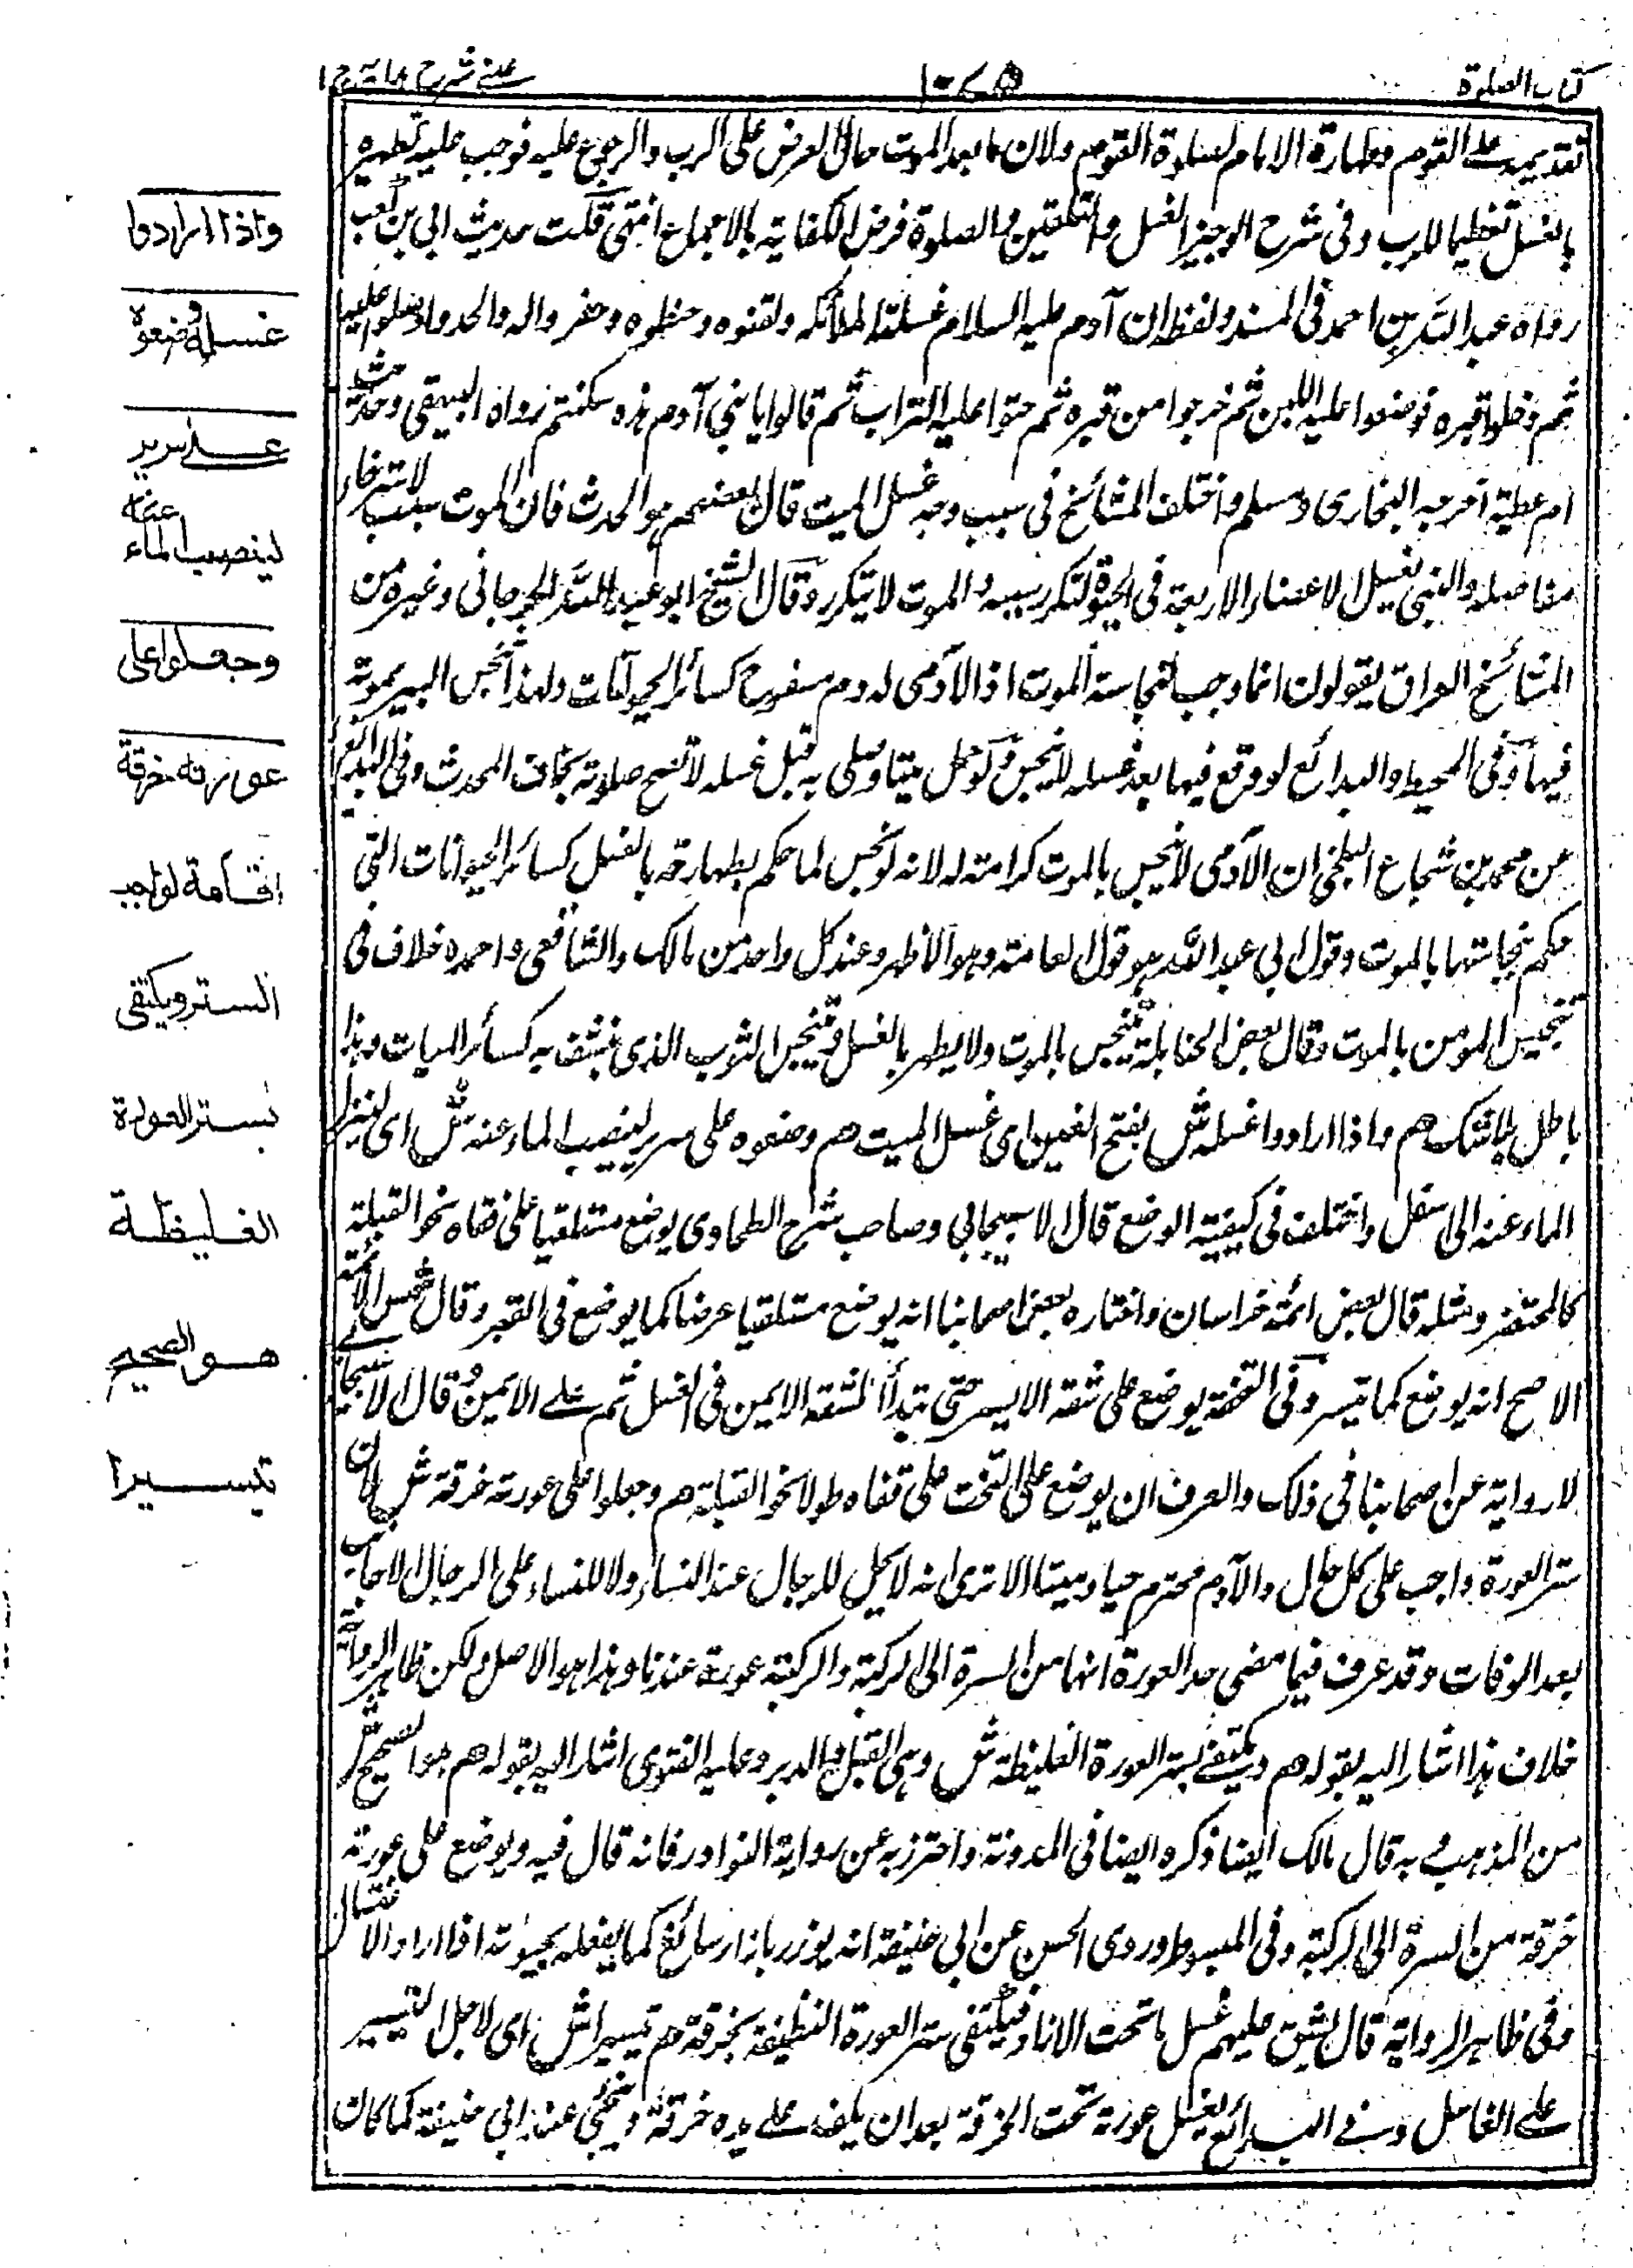 كتاب الصلوة
١٠٧٥
عينى شرح هداية ج ١
تقديمه على القوم وطهارة الامام لصلوة القوم ولان ما بعد الموت حال العرض على الرب والرجوع عليه فوجب عليه تطهيره
بالغسل تعظيما للرب وفى شرح الوجيز الغسل والتلقين والصلوة فرض الكفاية بالاجماع انتهى قلت حديث ابى بن كعب
رواه عبد الله بن احمد فى المسند ولفظ ان آدم عليه السلام غسلته الملائكة ولقنوه وحنطوه وحفروا له والحدوا وصلوا عليه
ثم دخلوا قبره فوضعوا عليه اللبن ثم خرجوا من قبره ثم حثوا عليه التراب ثم قالوا يا بنى آدم هذه سنتكم رواه البيهقى وحديث
ام عطية اخرجه البخارى ومسلم واختلف المشائخ فى سبب وجه غسل الميت قال بعضهم هو الحدث فان الموت سبب لاسترخاء
مفاصله والنبى يغسل الاعضاء الاربعة فى الحيوة لتكرر سببه والموت لا يتكرر وقال الشيخ ابو عبد الله الجرجانى وغيره من
المشائخ العراق يقولون انما وجب لنجاسة الموت اذ الآدمى له دم مسفوح كسائر الحيوانات ولهذا تنجس البير بموته
فيها وفى المحيط والبدائع لو وقع فيها بعد غسله لا تنجس ولو حمل ميتا وصلى به قبل غسله لا تصح صلوته بخلاف المحدث وفى البدائع
عن محمد بن شجاع البلخى ان الآدمى لا ينجس بالموت كرامة له لانه لو نجس لما حكم بطهارته بالغسل كسائر الحيوانات التى
حكم بنجاستها بالموت وقول ابى عبد الله هو قول العامة وهو الاظهر وعند كل واحد من مالك والشافعى واحمد خلاف فى
تنجيس المومن بالموت وقال بعض الحنابلة ينجس بالموت ولا يطهر بالغسل وينجس الثوب الذى ينشف به كسائر الميتات وهذا
باطل بلا شك هم واذا ارادوا غسله ش بفتح الغين اى غسل الميت هم وضعوه على سرير لينصب الماء عنه ش اى لينزل
الماء عنه الى اسفل واختلف فى كيفية الوضع قال الاسبيجابى وصاحب شرح الطحاوى يوضع مستلقيا على قفاه نحو القبلة
كالمحتضر ومثله قال بعض ائمة خراسان واختاره بعض اصحابنا انه يوضع مستلقيا عرضا كما يوضع فى القبر وقال شمس الائمة
الاصح انه يوضع كما تيسر وفى التحفة يوضع على شقه الايسر حتى تبدأ لشقه الايمن فى الغسل ثم على الايمن وقال الاسبيجابى
لا رواية عن اصحابنا فى ذلك والعرف ان يوضع على التخت على قفاه طولا نحو القبلة هم وجعلوا على عورته خرقة ش لان
ستر العورة واجب على كل حال والآدم محترم حيا وميتا الا ترى انه لا يحل للرجال عند النساء ولا للنساء على الرجال الاجانب
بعد الوفات وقد عرف فيما مضى حد العورة انها من السرة الى الركبة والركبة عورة عندنا وهذا هو الاصل ولكن ظاهر الرواية
خلاف هذا اشار اليه بقوله هم ويكتفى بستر العورة الغليظة ش وهى القبل والدبر وعليه الفتوى اشار اليه بقوله هم هو الصحيح ش
من المذهب وبه قال مالك ايضا ذكره ايضا فى المدونة واحترز به عن رواية النوادر فانه قال فيه ويوضع على عورته
خرقة من السرة الى الركبة وفى المبسوط وروى الحسن عن ابى حنيفة انه يوزر بازار سابغ كما يفعله بحيوته اذا اراد الاغتسال
وفى ظاهر الرواية قال يشق عليهم غسل ما تحت الازار فيكتفى ستر العورة الغليظة بخرقة هم تيسيرا ش اى لاجل التيسير
على الغاسل وفى البدائع يغسل عورته تحت الخرقة بعد ان يلف على يده خرقة وينجى عند ابى حنيفة كما كان
واذا ارادوا
غسله وضعوه
على سرير
لينصب الماء عنه
وجعلوا على
عورته خرقة
اقامة لواجب
الستر ويكتفى
بستر العورة
الغليظة
هو الصحيح
تيسيرا